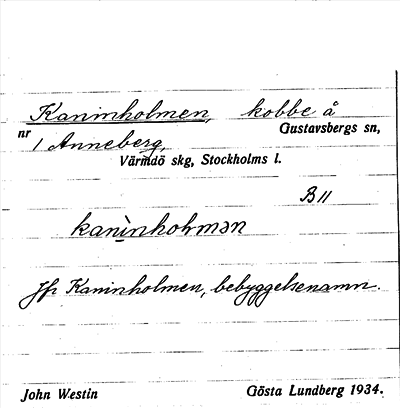 Kaninholmen, kobbe å
nr 1 Anneberg, Gustavsbergs sn,
Värmdö skg, Stockholms l.
B 11
kanìnholmən
Jfr Kaninholmen, bebyggelsenamn.
John Westin Gösta Lundberg 1934.